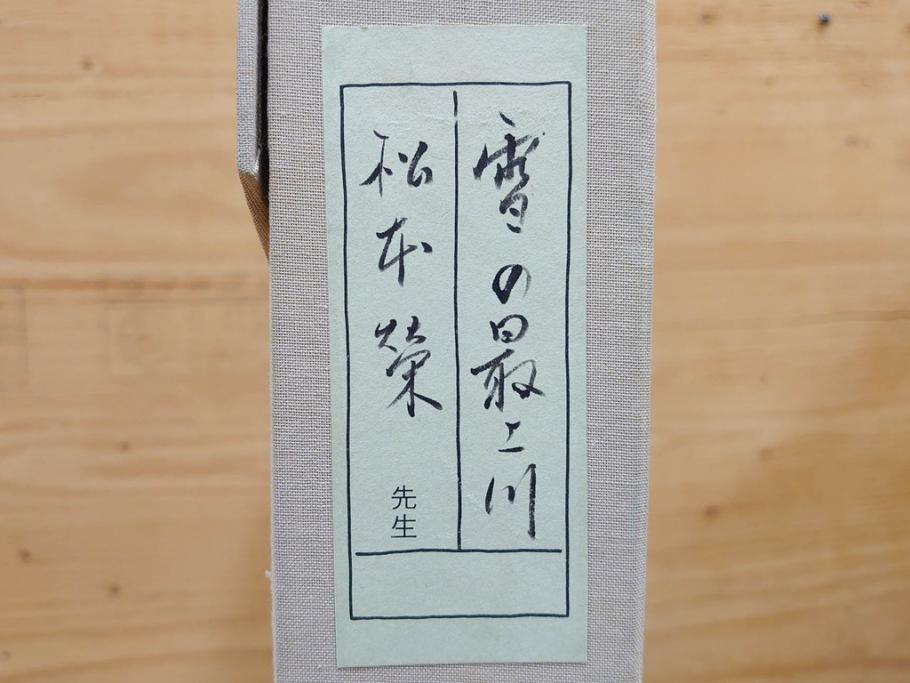 雪の最上川
松本榮 先生